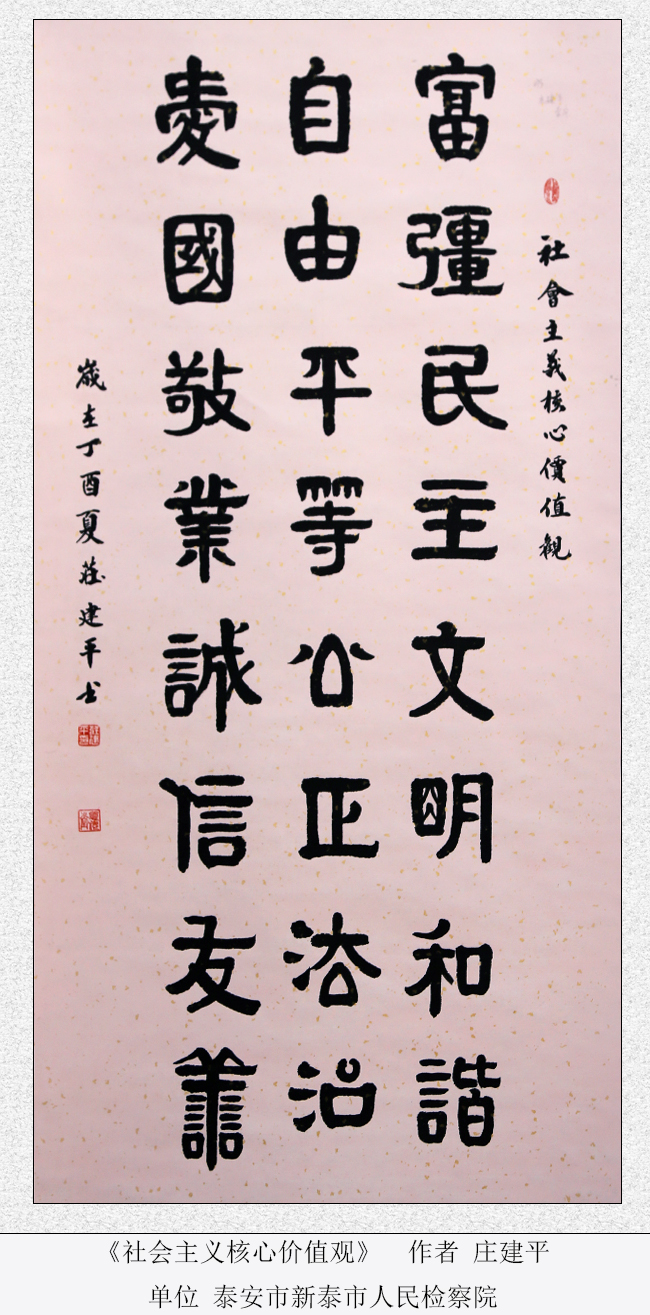 社會主義核心價值觀
富彊民主文明和諧
自由平等公正法治
愛國敬業誠信友善
歲在丁酉夏莊建平书
《社会主义核心价值观》 作者 庄建平
单位 泰安市新泰市人民检察院